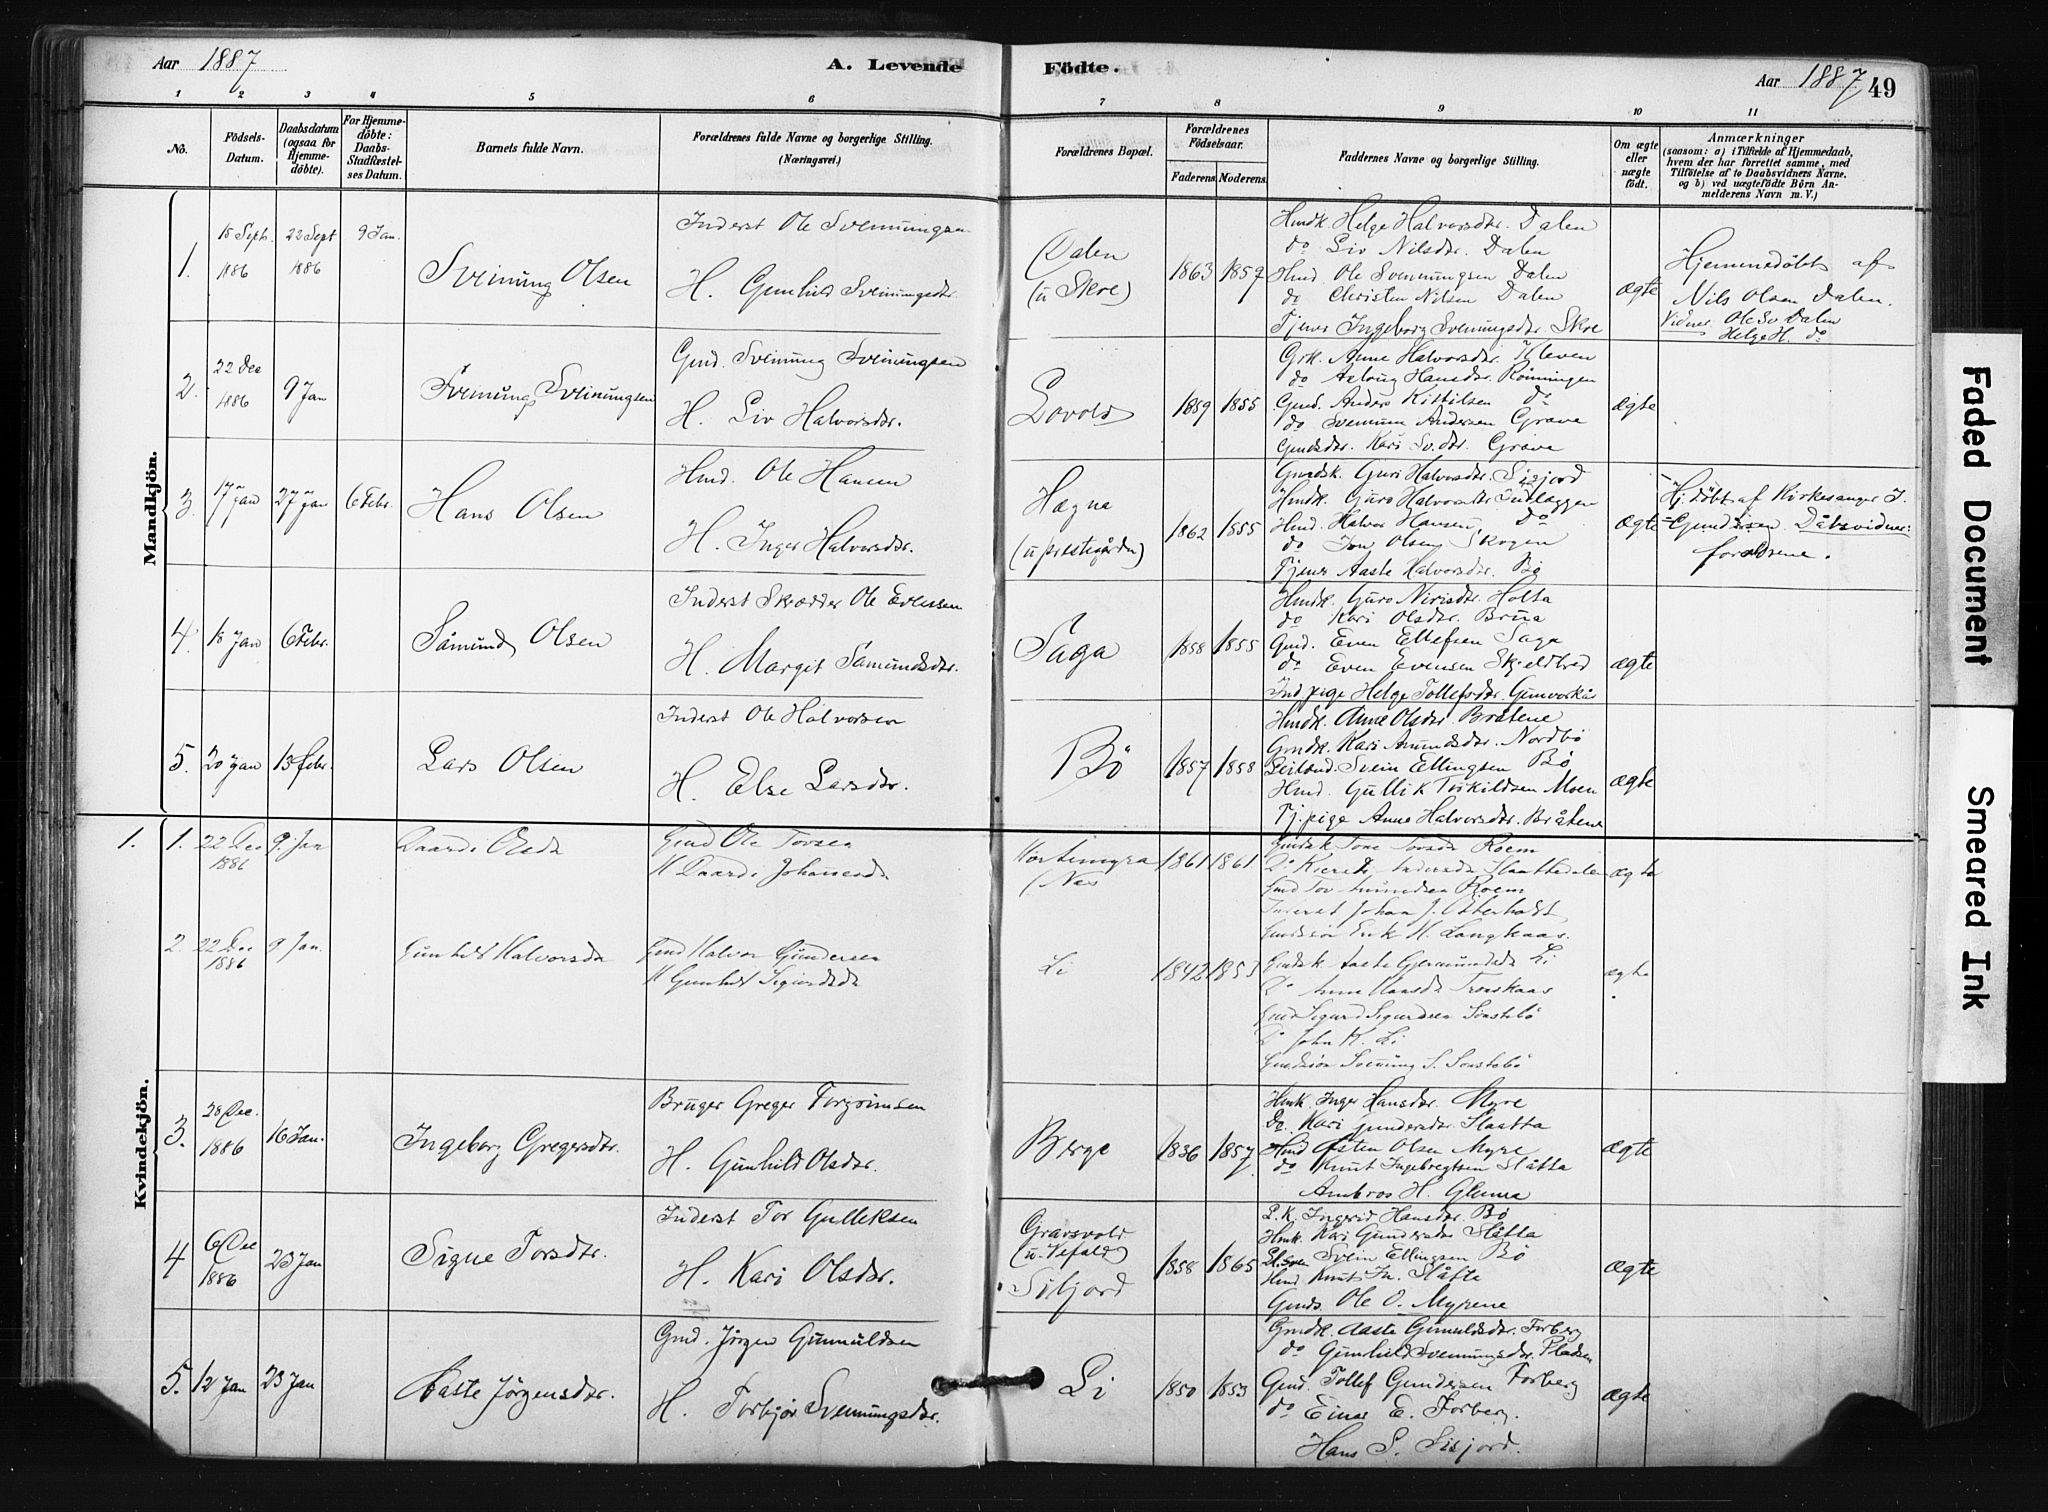 Aar 1887
A. Levende Födte.
Aar 1887
49
1 2 3 4 5 6 7 8 9 10 11
No.
Födsels-Datum.
Daabsdatum (ogsaa for Hjemme-döbte).
For Hjemme-döbte: Daabs-Stadfæstel-ses Datum.
Barnets fulde Navn.
Forældrenes fulde Navne og borgerlige Stilling.
(Næringsvei.)
Forældrenes Bopæl.
Forældrenes Födselsaar.
Faderens. Moderens.
Faddernes Navne og borgerlige Stilling.
Om ægte eller uægte födt.
Anmærkninger
(saasom: a) i Tilfælde af Hjemmedaab,
hvem der har forrettet samme, med
Tilföielse af to Daabsvidners Navne.
og b) ved uægtefödte Börn An-
melderens Navn m. V.)
Mandkjön.
1. 15 Sept. 1886 22 Sept 1886 9 Jan.
Sveinung Olsen
Inderst Ole Svennungsen
H. Gunhild Sveinungsdtr.
Dalen
(u Skre)
1863 1859
Hmdk. Helge Halvorsdtr. Dalen
do Liv Nilsdtr. Dalen
Hmd Ole Svennungsen Dalen
do Christen Nilsen Dalen
Tjener Ingeborg Svenungsdtr. Skre
ægte
Hjemmedöbt af
Nils Olsen Dalen.
Vidner Ole Sv Dalen
Helge H. do
2. 22 Dec 1886 9 Jan
Sveinung Sveinungsen
Gmd. Sveinung Sveinungsen
H. Liv Halvorsdtr.
Lovold
1859 1855
Grk. Anne Halvorsdtr. Kleven
do Aslaug Hansdtr. Rönningen
Gmd. Anders Kittilsen do
do Svennum Andersen Grave
Gmdsdtr. Kari Sv.dtr. Grave
ægte
3. 17 Jan 27 Jan 6 Febr.
Hans Olsen
Hmd. Ole Hansen
H. Inger Halvorsdtr.
Hægna
(u prestegården)
1862 1855
Gmdk. Guri Halvorsdtr. Sisjord
Hmdk. Guro Halvorsdtr
Hmd. Halvor Hansen do
do Jon Olsen Skogen
Tjener Aaste Halvorsdtr. Bö
ægte
Hj.döbt af Kirkesanger J.
Gundersen Dåbsvidner:
forældrene.
4. 18 Jan 6 Febr.
Såmund Olsen
Inderst Skrædder Ole Evensen
H. Margit Såmundsdtr.
Saga
1858 1855
Hmdk. Guro Nirisdtr. Holta
do Kari Olsdtr. Brua
Gmd. Even Ellefsen Saga
do Even Evensen Skjeldbred
Ind. pige Helge Tollefsdtr. Gunvorkås
ægte
5. 20 Jan 13 Febr.
Lars Olsen
Inderst Ole Halvorsen
H. Else Larsdtr.
Bö
1857 1858
Hmdk. Anne Olsdtr Bråtene
Gmdk. Kari Amundsdtr. Nordbö
Svein Ellingsen Bö
Hmd. Gullik Torkildsen Moen
Tj.pige Anne Halvorsdtr. Bråtene
ægte
Kvindekjön.
1. 1. 22 Dec 1886 9. Jan
Taardi Olsdr
Gmd Ole Torsen
H Taardi Johannesdr
(Næs
1861 1861
Gmdsk Tone Torsdr Roem
Do Kjersti Andersdr Slaattedalen
Gmd Tov Amundsen Roem
Inderst Johan J. Österholdt
Gmdssön Erik H. Langkaas.
ægte
2. 22 Dec 1886 9 Jan.
Gunhild Halvorsdr
Gmd Halvor Gundersen
H Gunhild Sigurdsdr
Li
1842 1853
Gmdsk Aaste Gjermundsdr Li
Do Anne Hansdr Tronskaas
Gmd Sigurd Sigurdsen Sönstebö
Do John K. Li
Gmdssön Svenung S. Sönstebö
ægte
3. 28 Dec. 1886 16 Jan.
Ingeborg Gregersdtr.
Bruger Greger Torgrimsen
H. Gunhild Olsdtr.
Berge
1836 1857
Hmk. Inger Hansdtr. Myre
Do. Kari Gundersdtr. Slaatta
Hmd Östen Olsen Myre
do Knut Ingebregtsen Slåtta
Ambros H. Glenna
ægte
4 6 Dec 1886 23 Jan
Signe Torsdtr.
Inderst Tor Gulleksen
H. Kari Olsdtr.
Gravsvold
(u. Vefald)
Siljord
1858 1865
L.k. Ingerid Hansdtr. Bö
Hmk. Kari Gundersdtr Slåtta
Svein Ellingsen Bö
Hmd Knut In. Slåtta
Gmds. Ole O. Myrene
ægte
5. 12 Jan 23 Jan
Aaste Jörgensdtr.
Gmd. Jörgen Gunnuldsen
H. Torbjör Svennungsdtr.
Li
1850 1853
Gmdk. Aaste Gunuldsdtr. Forberg
do Gunhild Svennungsdtr. Pladsen
Gmd. Tollef Gundersen Forberg
do Einar E. Forberg.
Hans S. Sisjord.
ægte
Faded Document
Smeared Ink